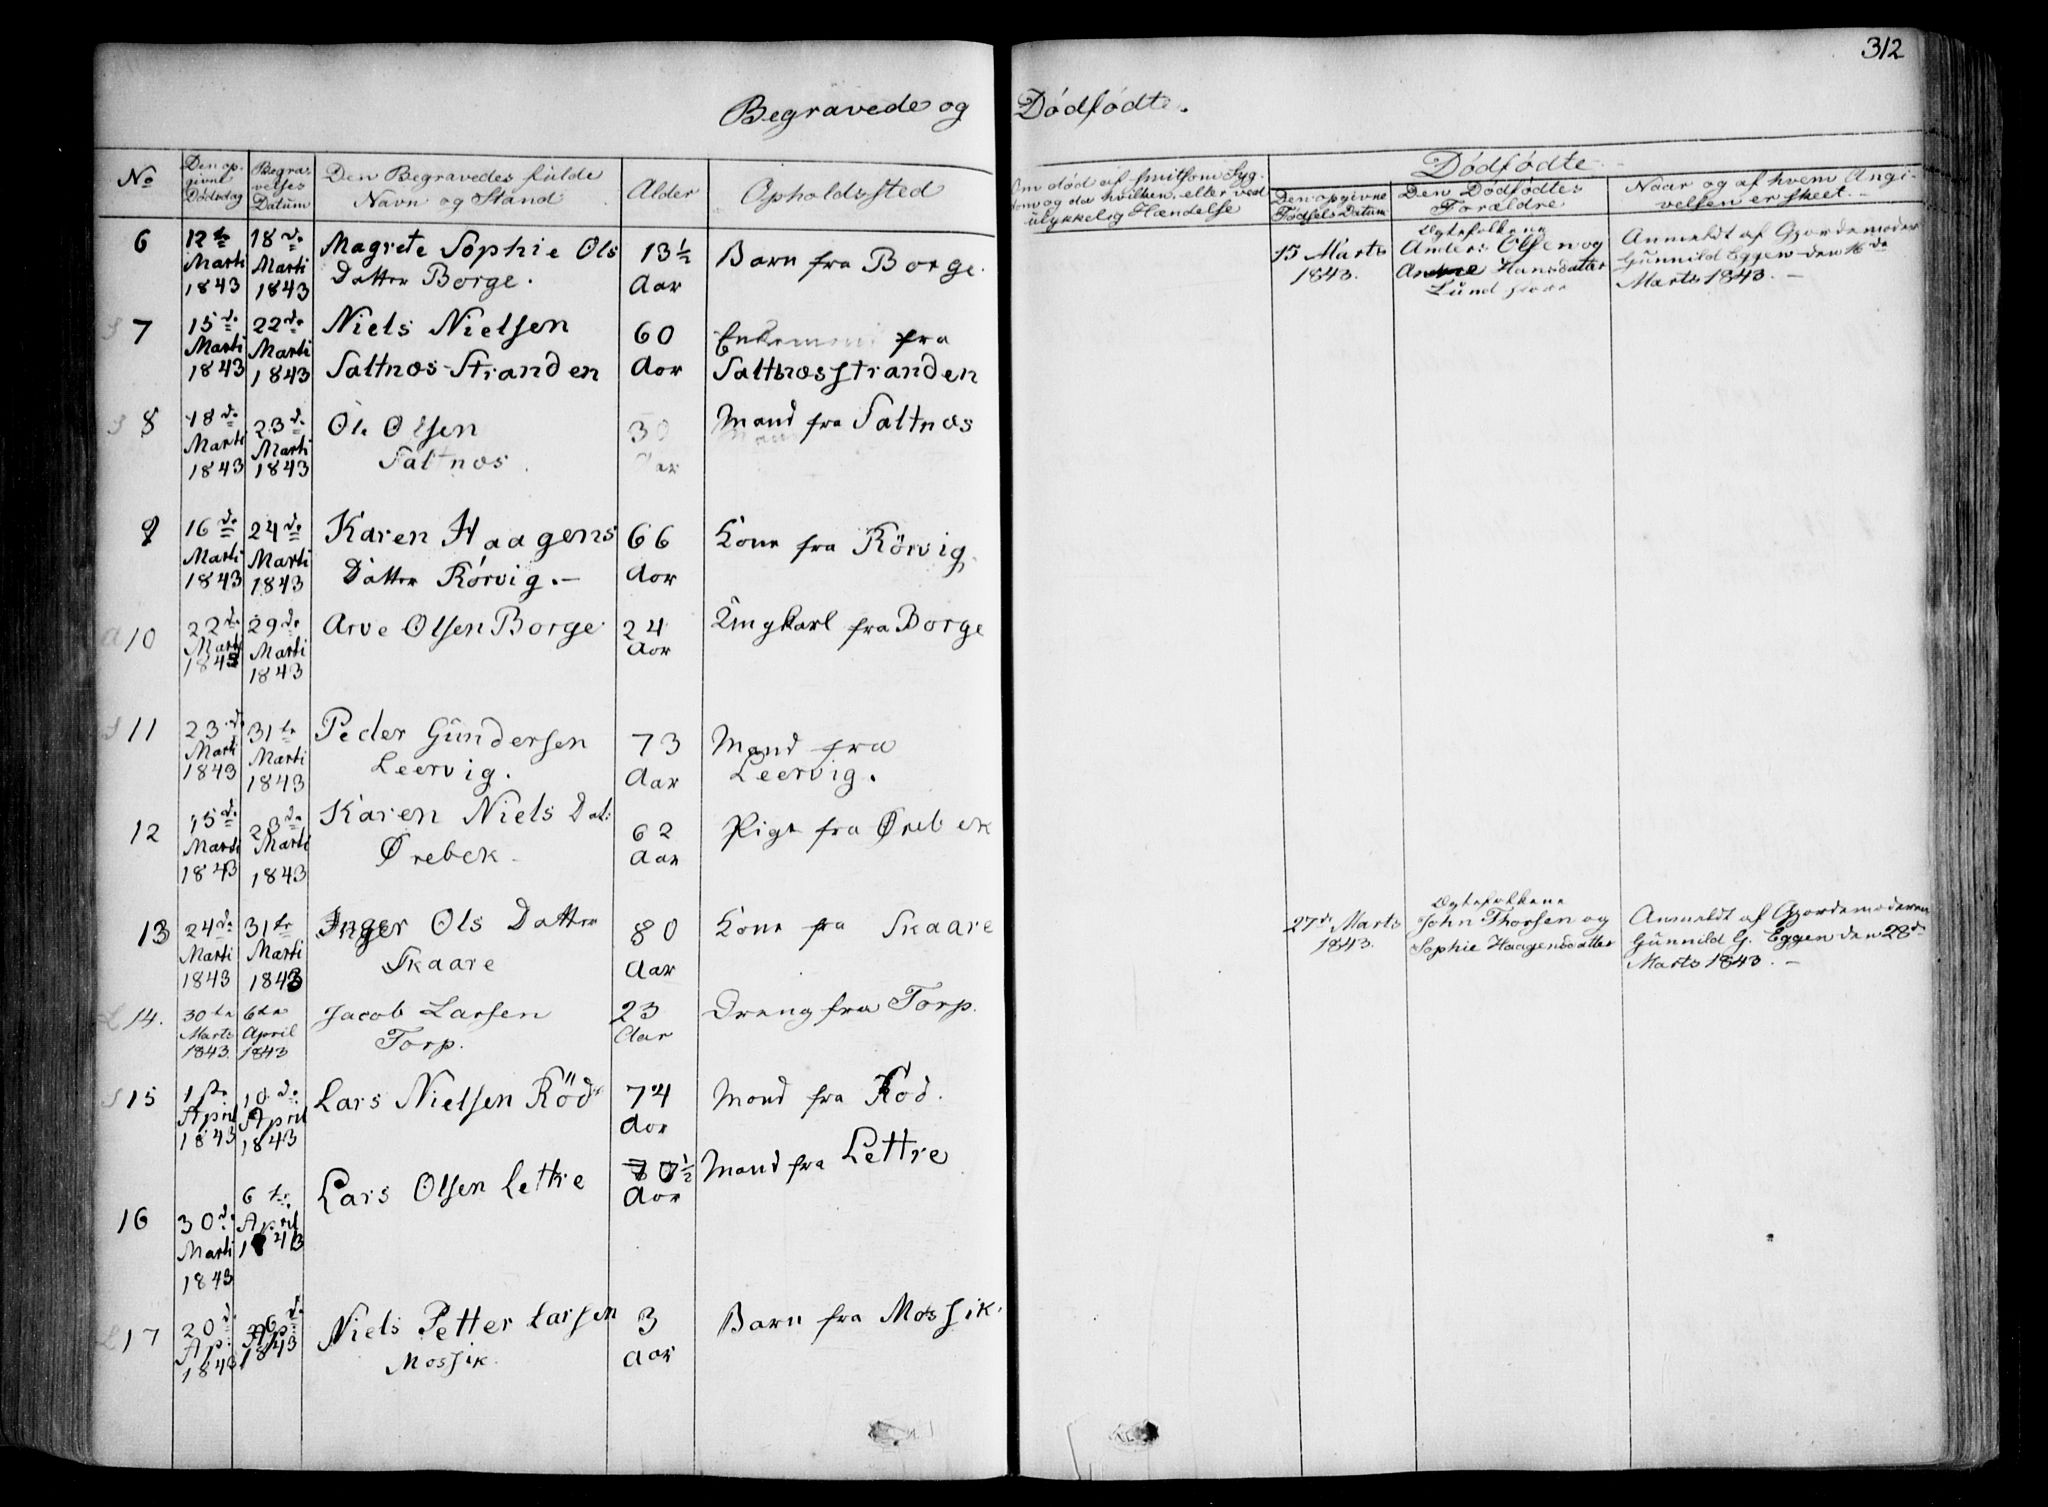 312
Begravede og Dødfødte.
No
Den op-
givne
Dødsdag
Begra-
velses
Datum
Den Begravedes fulde
Navn og Stand
Alder
Opholdssted
Om død af smitsom Syg-
dom og da hvilken, eller ved
ulykkelig Hændelse
Dødfødte
Den opgivne
Fødsels Datum
Den Dødfødtes
Forældre
Naar og af hvem Angi-
velsen er skeet.
6
12te
Marti
1843
18de
Marti
1843
Magrete Sophie Ols
Datter Borge.
13½
Aar
Barn fra Borge.
15 Marts
1843.
Ægtefolkene
Anders Olsen og
Hansdatter
Lund
Anmeldt af Gjordemoder
Gunnild Eggen den 16de
Marts 1843. —
S 7
15de
Marti
1843
22de
Marti
1843
Niels Nielsen
Saltnæs-Stranden
60
Aar
Enkemand fra
Saltnæsstranden
S 8
18de
Marti
1843
23de
Marti
1843
Ole Olsen
Saltnæs.
30
Aar
Mand fra Saltnæs
9
16de
Marti
1843
24de
Marti
1843
Karen Haagens
Datter Körvig. —
66
Aar
Kone fra Körvig
a 10
22de
Marti
1843
29de
Marti
1843
Arve Olsen Borge
24
Aar
Ungkarl fra Borge
S 11
23de
Marti
1843
31te
Marti
1843
Peder Gundersen
Leervig.
73
Aar
Mand fra
Leervig.
12
15de
Marti
1843
23de
Marti
1843
Karen Niels Dat:
Ørebek
62
Aar
Pige fra Ørebek
13
24de
Marti
1843
31te
Marti
1843
Inger Ols Datter
Skaare
80
Aar
Kone fra Skaare
27de Marts
1843.
Ægtefolkene
John Thorsen og
Sophie Haagensdatter
Anmeldt af Gjordemoderen
Gunnild G. Eggen den 28de
Marts 1843. —
L 14.
30te
Marts
1843.
6te
April
1843
Jacob Larsen
Torp.
23
Aar
Dreng fra Torp.
S 15
1ste
April
1843
10de
April
1843
Lars Nielsen Röd
74
Aar
Mand fra Röd.
16
30de
Marti
1843
6te
April
1843
Lars Olsen Lettre
½
Aar
Mand fra Lettre
L 17
20de
Ap:
1843
Ap:
1843
Niels Petter Larsen
Mossik.
3
Aar
Barn fra Mossik.